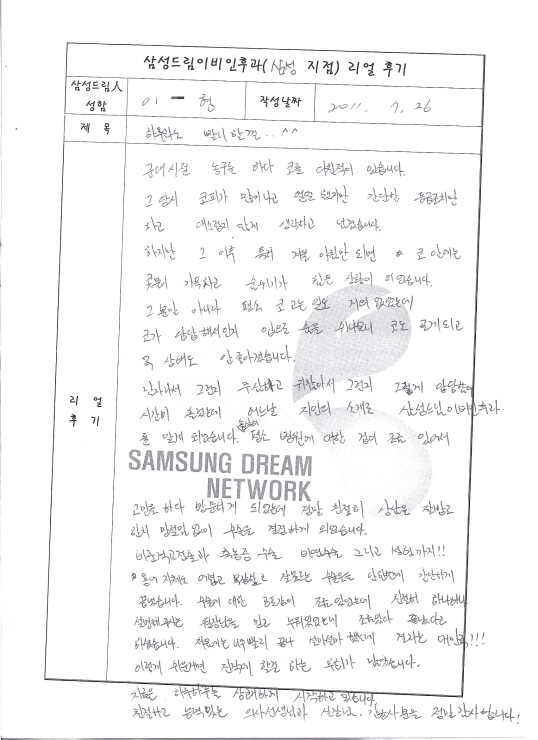 삼성드림이비인후과(삼성 지점) 리얼 후기
삼성드림人 성함
이一형
작성날짜
2011. 7. 26
제 목
하루라도 빨리 할껄..^^
리 얼
후 기
군대시절 농구를 하다 코를 다친적이 있습니다.
그 당시 코피가 많이나고 했지만 간단한 응급처치만
하고 대수롭지 않게 생각하고 넘겼습니다.
하지만 그 이후 특히 겨울 아침만 되면 코 안에는
콧물이 가득차고 숨쉬기가 힘든 상황이 되었습니다.
그 뿐만 아니라 평소 코 고는일도 거의 없었는데
코가 답답해서인지 입으로 숨을 쉬다보니 코도 골게되고
목 상태도 안좋아졌습니다.
남자라서 그런지 무신경하고 귀찮아서 그런지 그렇게 답답함에
시간이 흘렀는데 어느날 지인의 소개로 삼성드림이비인후과
를 알게 되었습니다. 평소 병원에 대한 겁이 조금 있어서
SAMSUNG DREAM
NETWORK
고민을 하다 방문하게 되었는데 정말 친절히 상담을 해주시고
한치 망설임없이 수술을 결정하게 되었습니다.
비중격교정술과 축농증 수술 비염수술 그리고
용어 자체도 어렵고 수술을 간단하게
끝냈습니다. 수술에 대한 공포감이 조금 있었는데 친절히 하나하나
설명해주시는 원장님을 믿고 누워있었는데 끝났다고
하셨습니다. 너무빨리 끝나 설마설마 했는데 결과는 대만족!!!
이렇게 쉬운거면 진작에 할걸 하는 후회가 남았습니다.
지금은 하루하루를 상쾌하게 시작하고 있습니다.
친절하고 능력있는 의사선생님과 실장님, 간호사분들 정말 감사합니다!